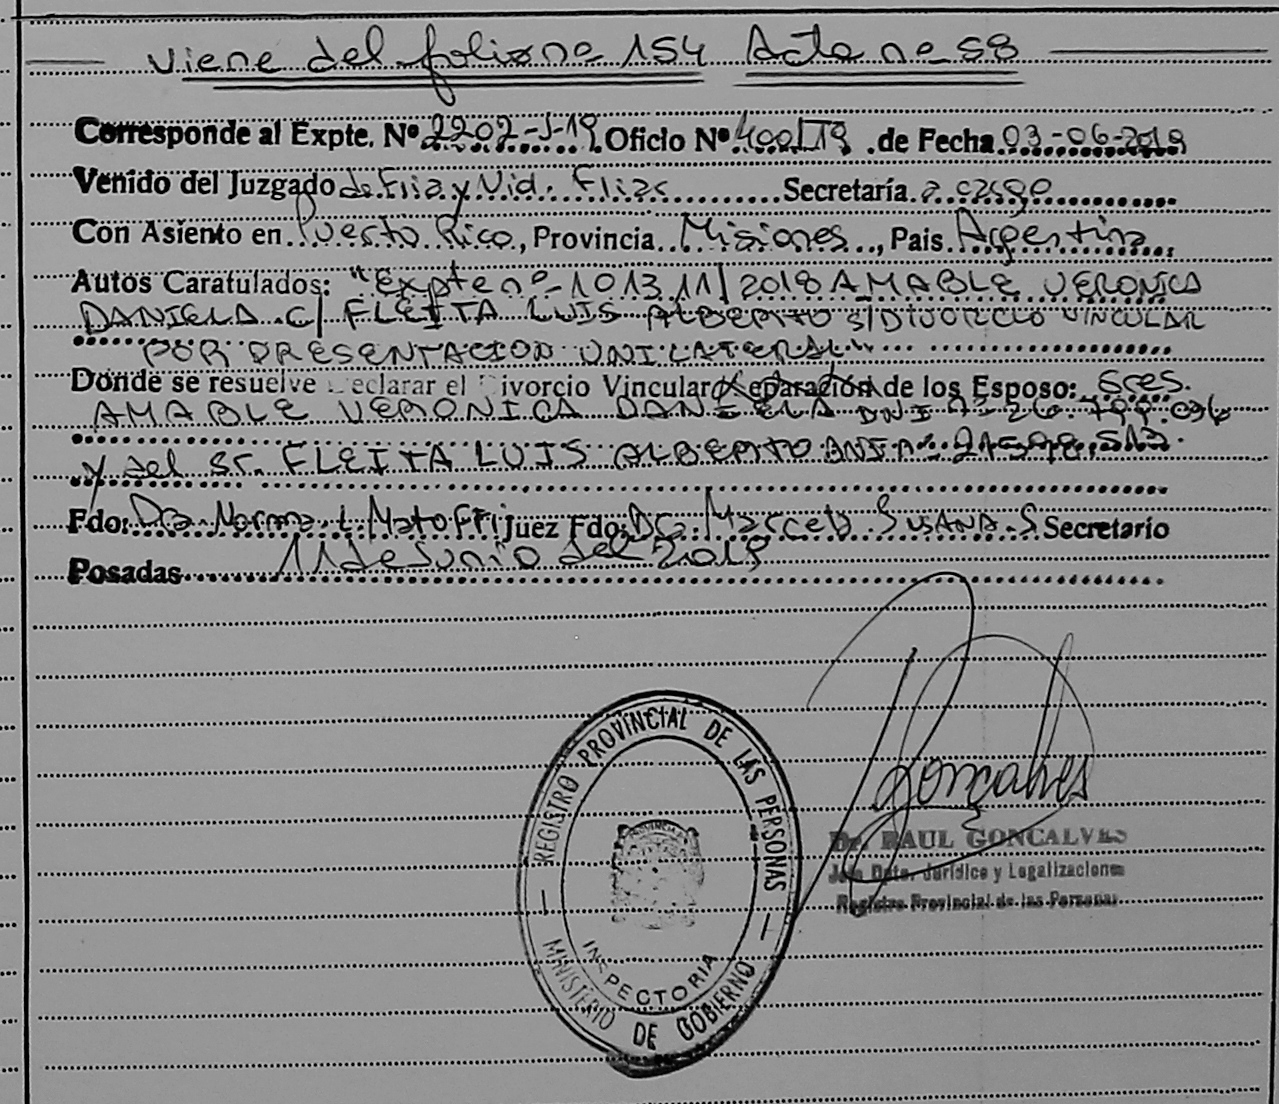 Viene del folio nº 154 Acta nº 58
Corresponde al Expte. Nº 2202-J-19 Oficio Nº 400/19 de Fecha 03-06-2019
Venido del Juzgado de Flia y Viol. Fliar Secretaría a cargo
Con Asiento en Puerto Rico, Provincia Misiones, Pais Argentina
Autos Caratulados: "Expte nº 101311/2018 AMABLE VERONICA
DANIELA C/ FLEITA LUIS ALBERTO S/DIVORCIO VINCULAR
POR PRESENTACION UNILATERAL"
Donde se resuelve Declarar el Divorcio Vincular Separación de los Esposo: Sres.
AMABLE VERONICA DANIELA DNI nº 26.
y del Sr. FLEITA LUIS ALBERTO DNI nº
Fdo: Dra. Norma L. Juez Fdo: Dra. Marcela Susana S. Secretario
Posadas 11 de Junio del 2019
REGISTRO PROVINCIAL DE LAS PERSONAS
INSPECTORIA
MINISTERIO DE GOBIERNO
Goncalves
Dr. RAUL GONCALVES
Jefe Dpto. Jurídico y Legalizaciones
Registro Provincial de las Personas